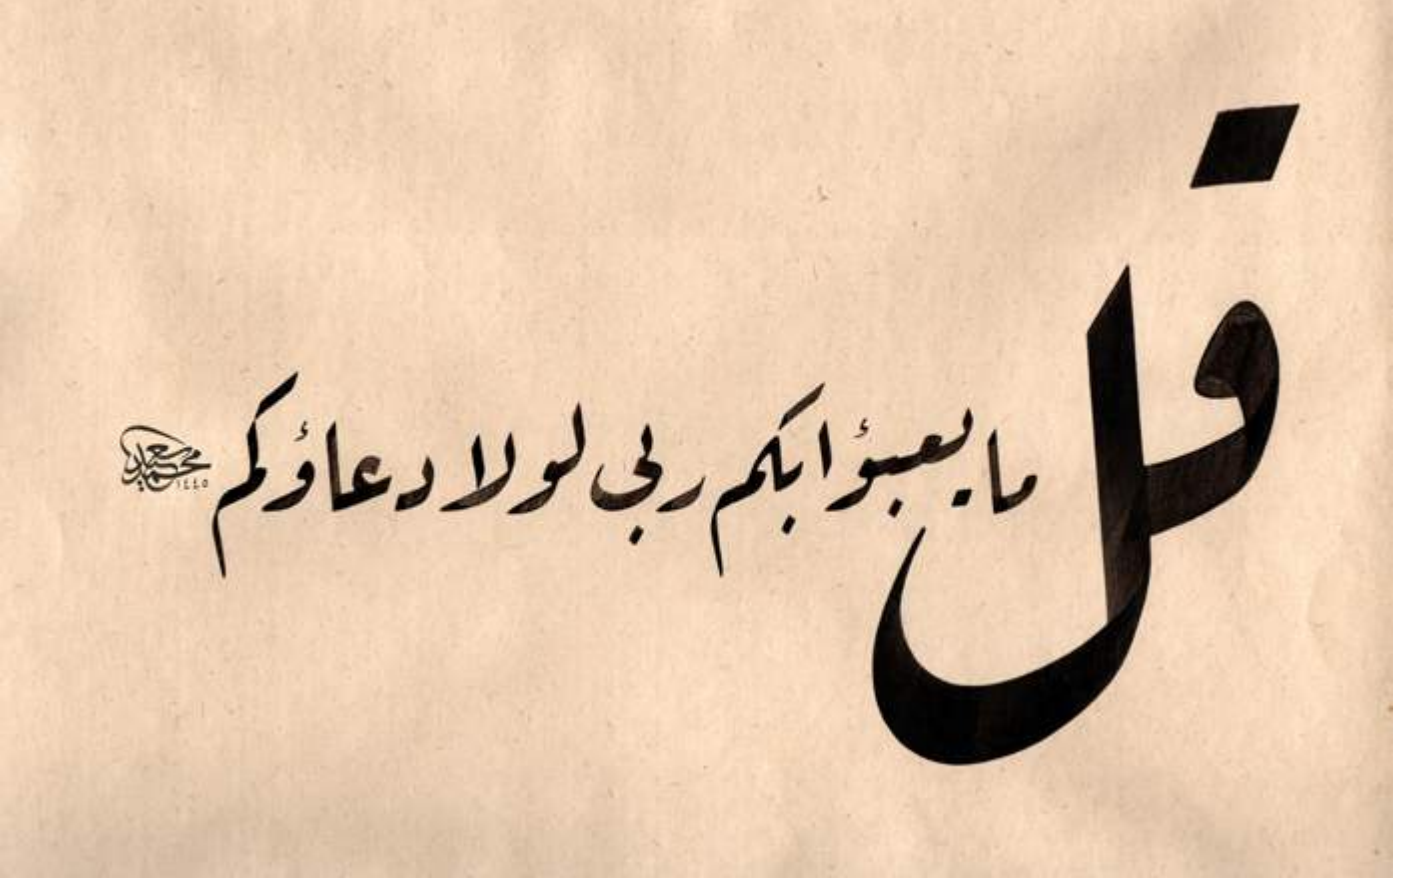 قل ما يعبؤا بكم ربي لولا دعاؤكم
محمد سعيد ١٤٤٥